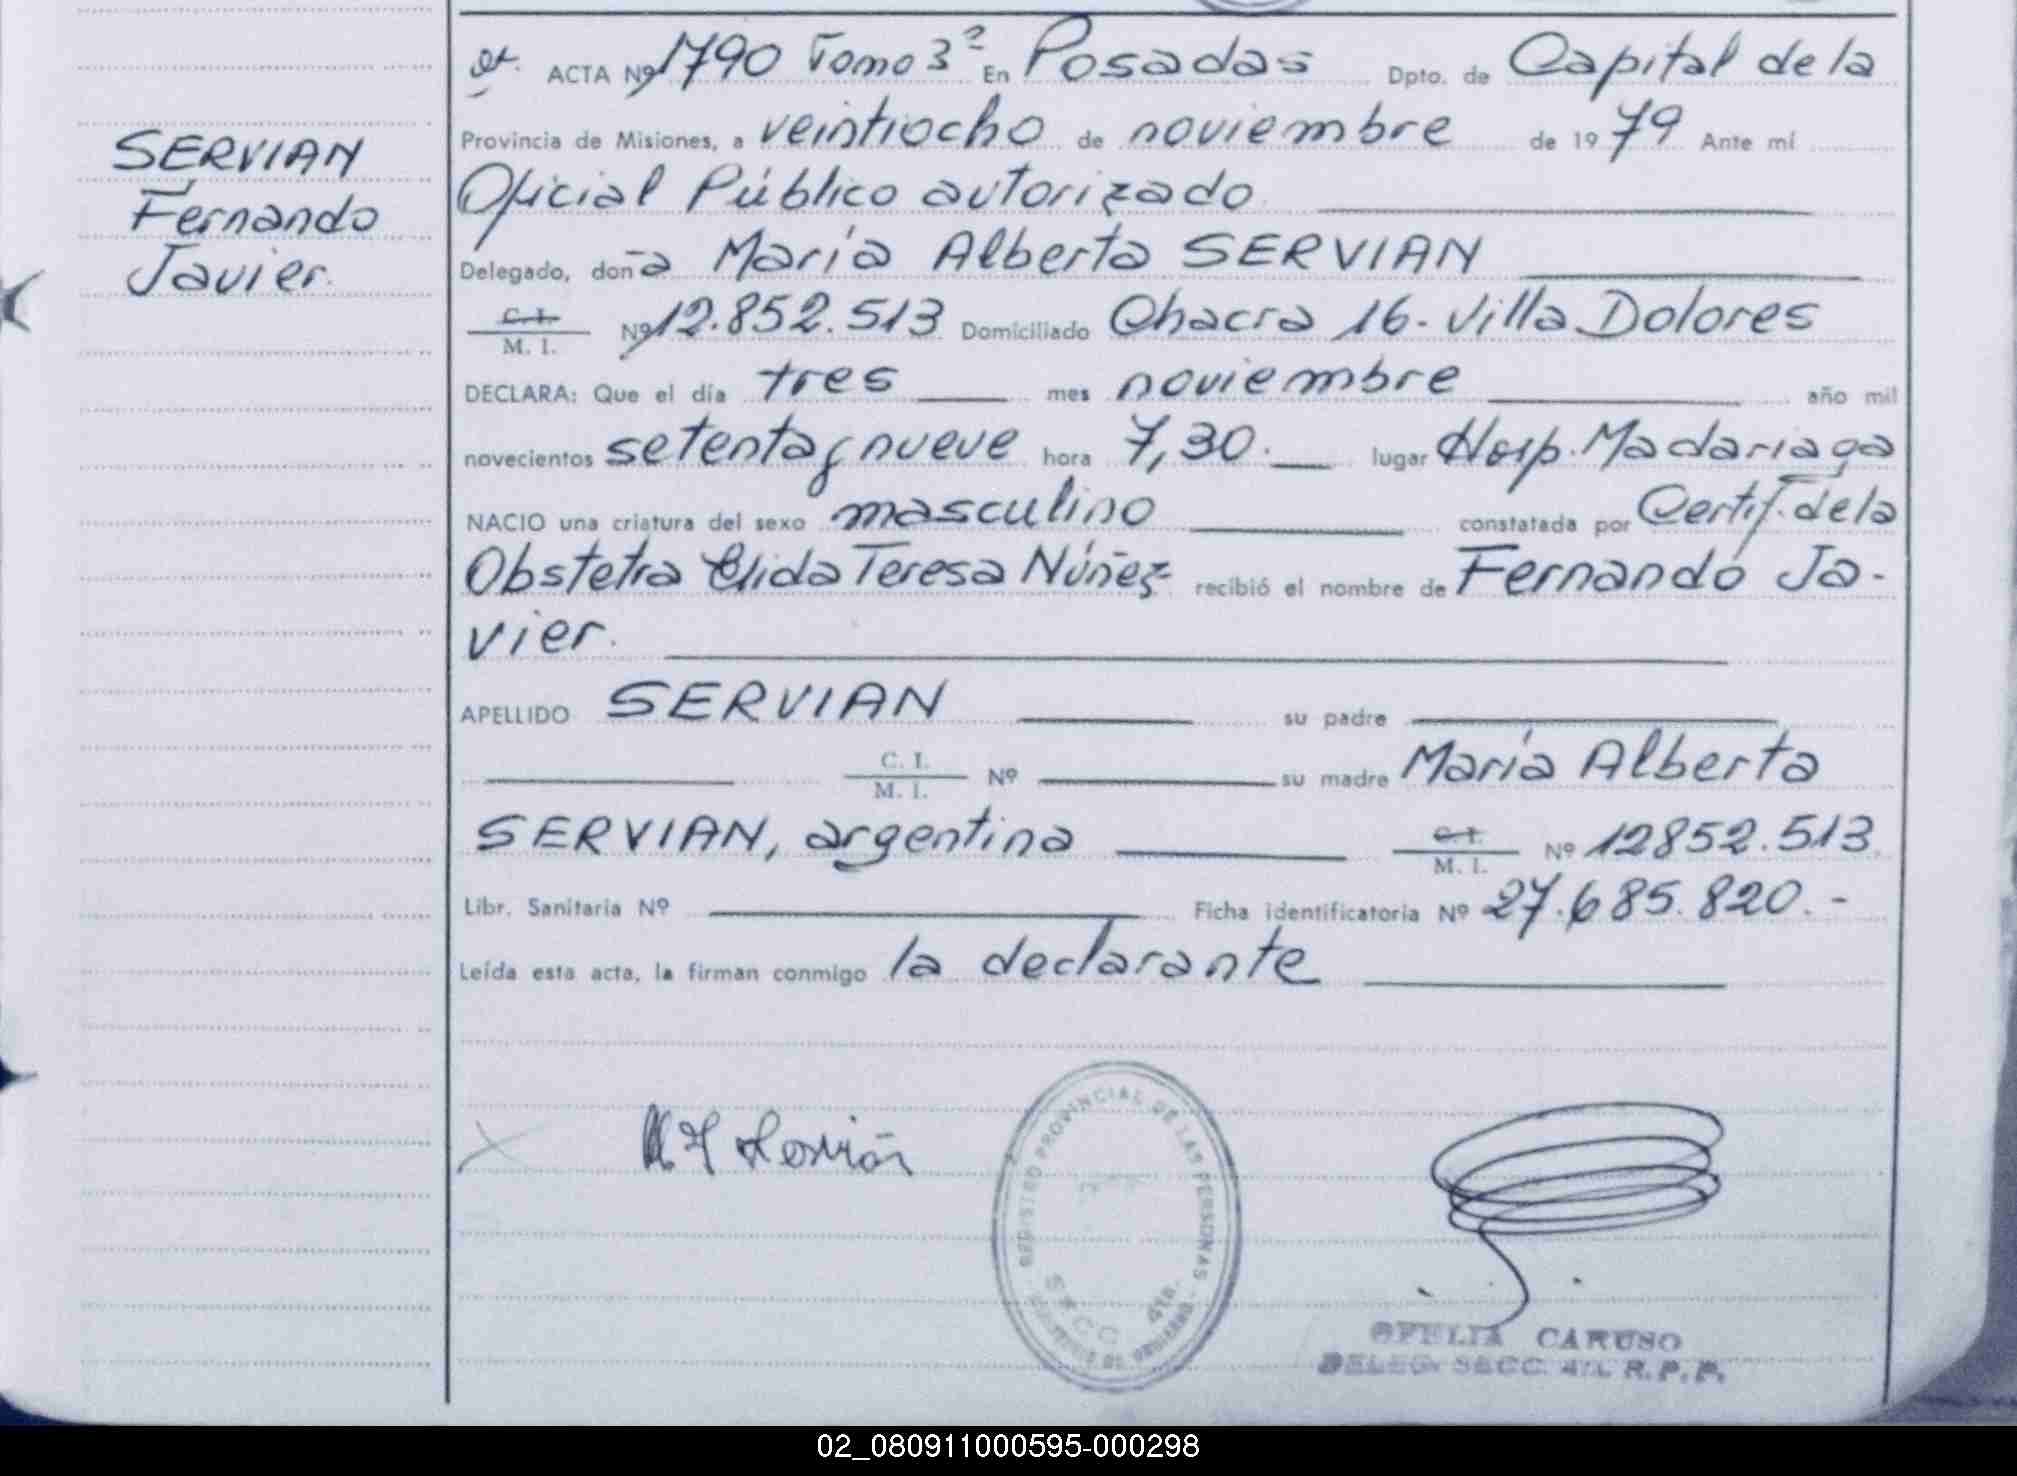 ACTA Nº 1790 Tomo 3º En Posadas Dpto. de Capital de la
Provincia de Misiones, a veintiocho de noviembre de 1979 Ante mí
Oficial Público autorizado
Delegado, doña María Alberta SERVIAN
C. I. / M. I. Nº 12.852.513 Domiciliado Chacra 16 - Villa Dolores
DECLARA: Que el día tres mes noviembre año mil
novecientos setenta y nueve hora 7,30. lugar Hosp. Madariaga
NACIO una criatura del sexo masculino constatada por Certif. de la
Obstetra Elida Teresa Núñez recibió el nombre de Fernando Ja-
vier.
APELLIDO SERVIAN su padre
C. I. / M. I. Nº su madre María Alberta
SERVIAN, argentina C. I. / M. I. Nº 12852.513
Libr. Sanitaria Nº Ficha identificatoria Nº 27.685.820.-
Leída esta acta, la firman conmigo la declarante
SERVIAN
Fernando
Javier.
Servián
REGISTRO PROVINCIAL DE LAS PERSONAS
SECC. 4ta.
OFELIA CARUSO
DELEG. SECC. 4ta. R.P.P.
02_080911000595-000298